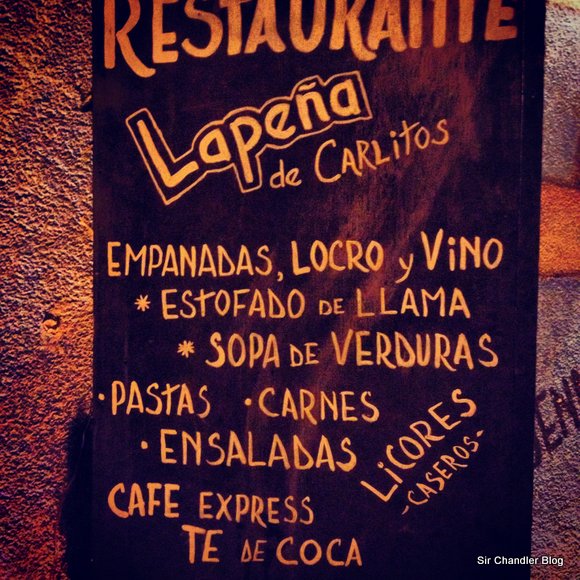 RESTAURANTE
Lapeña
de CARLITOS
EMPANADAS, LOCRO y VINO
* ESTOFADO DE LLAMA
* SOPA DE VERDURAS
· PASTAS · CARNES
· ENSALADAS
LICORES
- CASEROS -
CAFE EXPRESS
TE DE COCA
Sir Chandler Blog